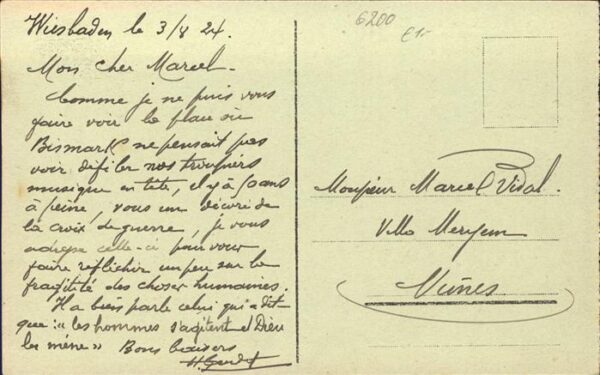 Wiesbaden le 3/8 24.
Mon cher Marcel.
Comme je ne puis vous
faire voir la place où
Bismark ne pensait pas
voir défiler nos troupiers
musique en tête, il y a 50 ans
à peine, vous un décoré de
la croix de guerre, je vous
adresse celle-ci pour vous
faire réfléchir un peu sur la
fragilité des choses humaines.
Il a bien parlé celui qui a dit
que : « les hommes s'agitent et Dieu
les mène » Bons baisers
6200
€1-
Monsieur Marcel Vidal.
Villa Meryem
Nîmes